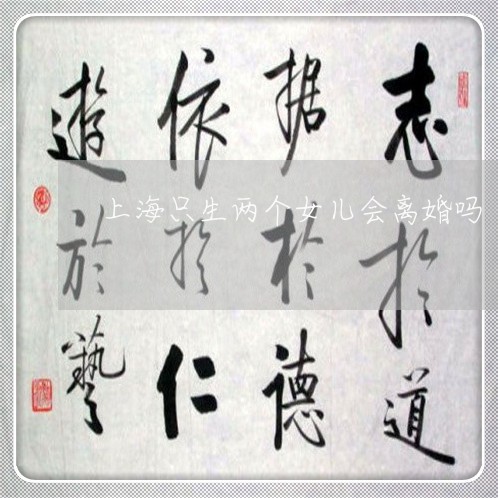 志於道
据於德
依於仁
遊於藝
上海只生两个女儿会离婚吗